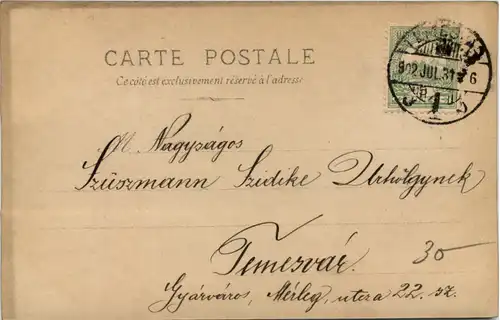 CARTE POSTALE
Ce côté est exclusivement réservé à l'adresse
902 JUL. 31
Nagyságos
Szüszmann Szidike Úrhölgynek
Temesvár.
30
Gyárváros, Mérleg utcza 22. sz.